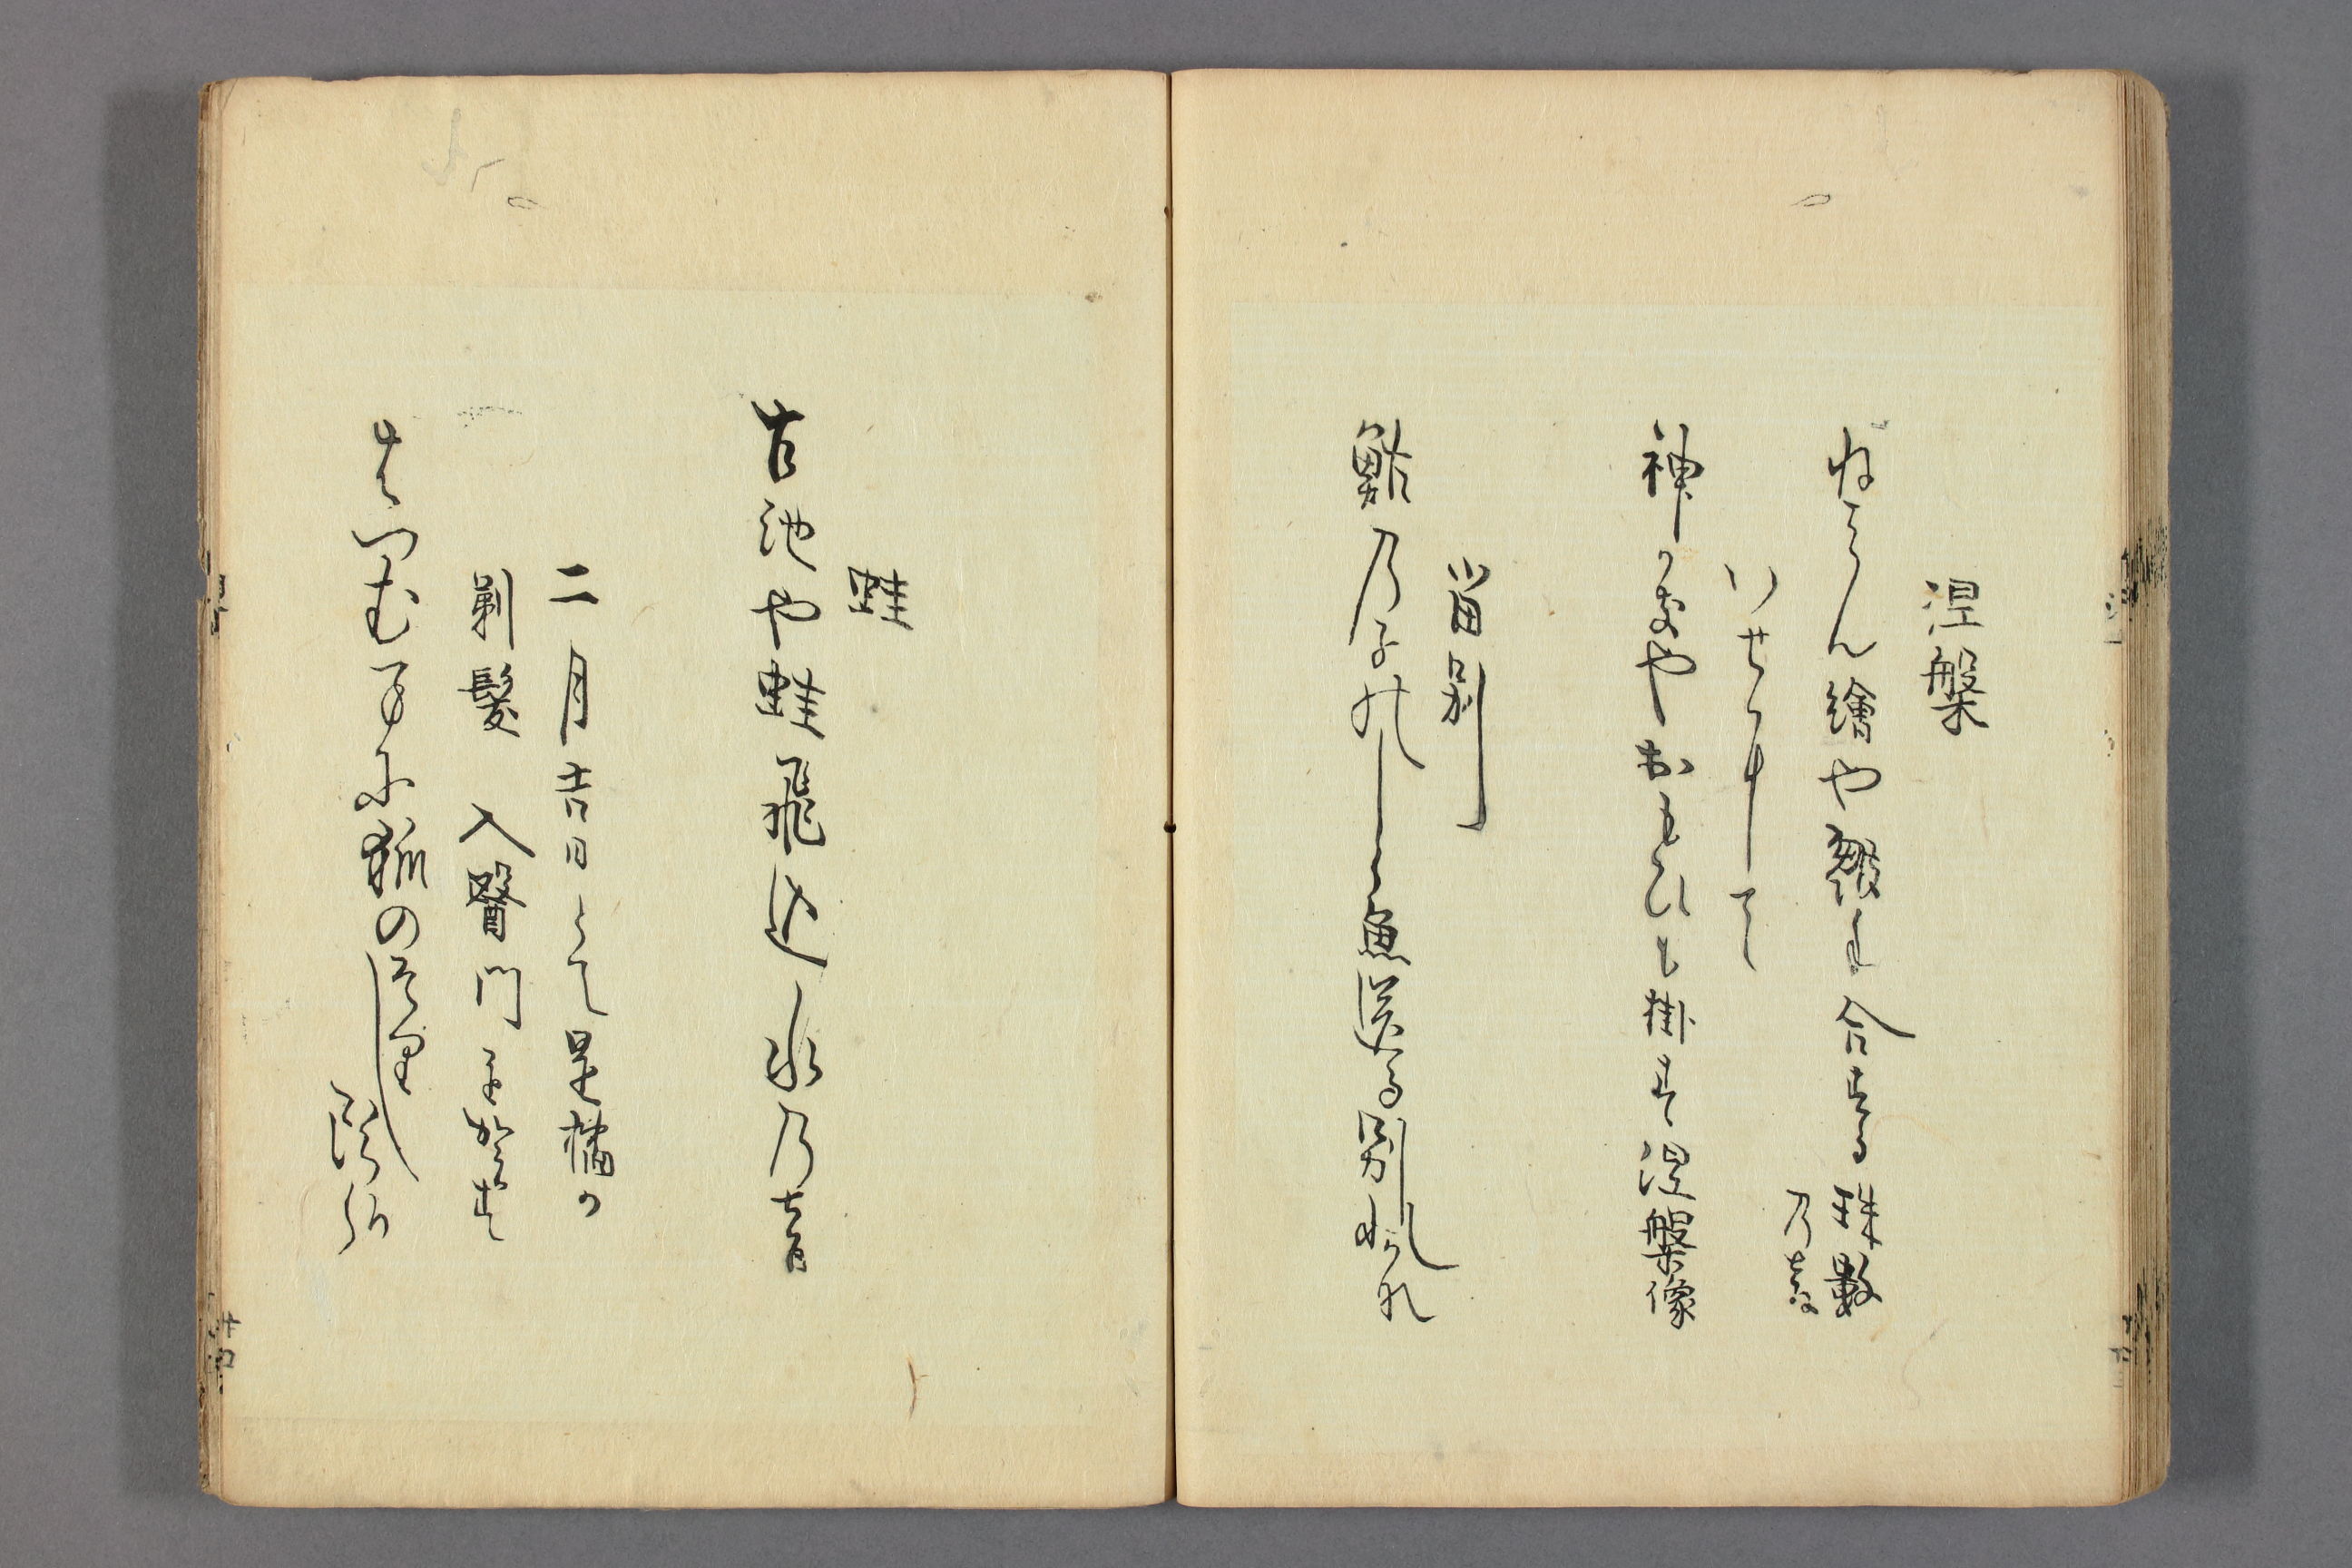 涅槃
ねはん繪や皺手合する珠數
乃音
いせにして
神かきやおもひも掛す涅槃像
留別
鮎乃子のしら魚送る別れかな
蛙
古池や蛙飛込水乃音
二月吉日とて是橘か
剃髪 入醫門を賀す
はつむまに狐のそりし頭哉